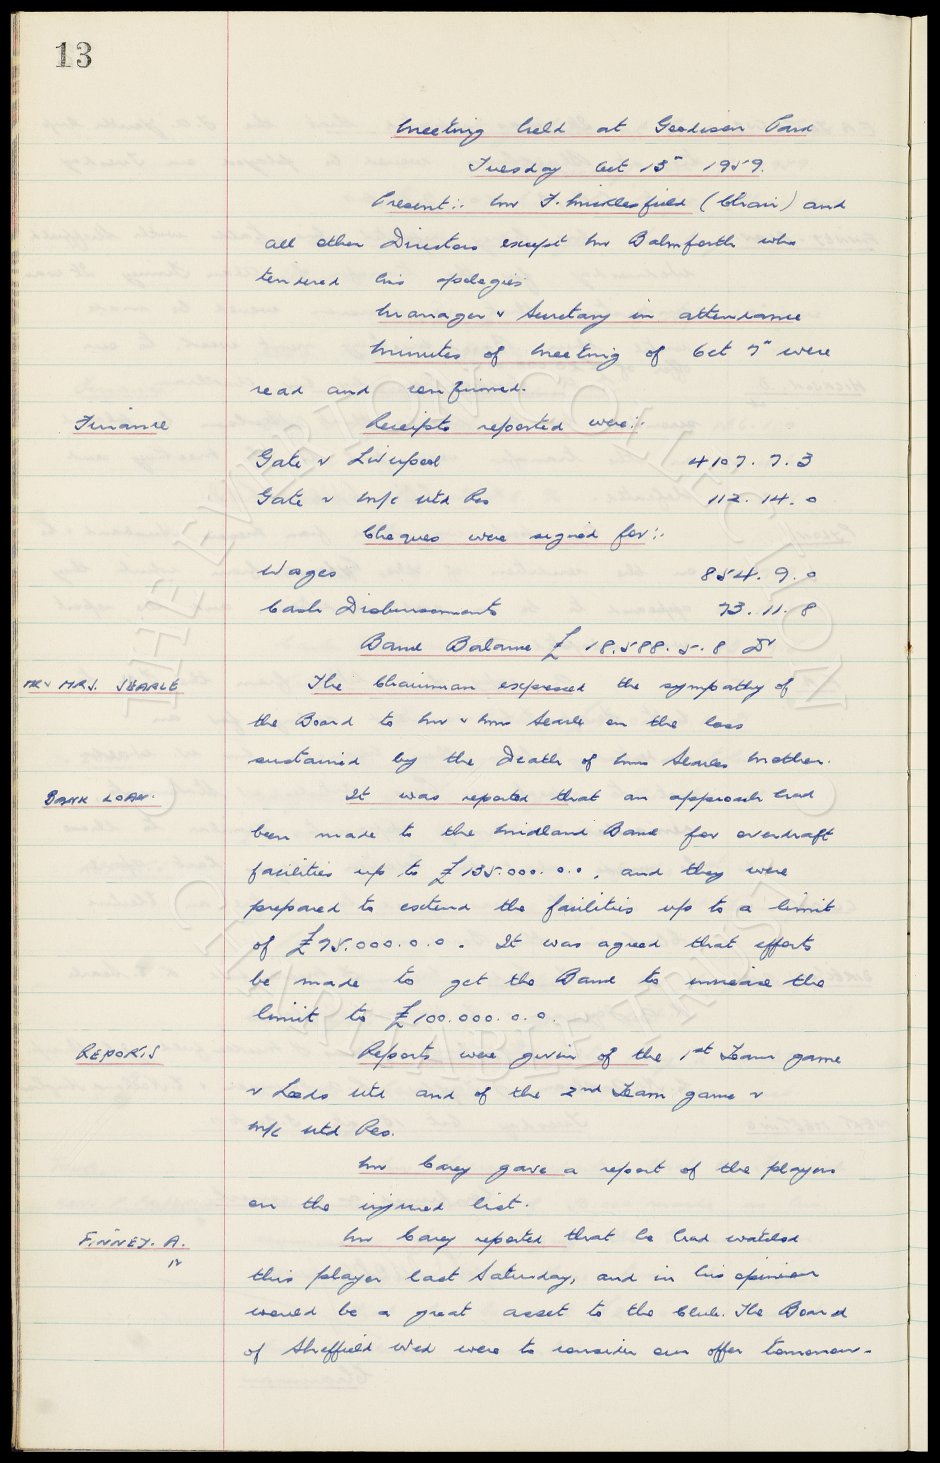 13
Meeting held at Goodison Park
Tuesday Oct 13th 1959.
Present:- Mr F. Micklesfield (Chair) and
all other Directors except Mr Balmforth who
tendered his apologies
Manager & Secretary in attendance
Minutes of Meeting of Oct 7th were
read and confirmed.
Finance Receipts reported were:-
Gate v Liverpool 4107. 7. 3
Gate v M/c Utd Res 112. 14. 0
Cheques were signed for:-
Wages 854. 9. 0
Cash Disbursements 73. 11. 8
Bank Balance £ 18.588. 5. 8 Dr
MR & MRS. SEARLE The Chairman expressed the sympathy of
the Board to Mr & Mrs Searle on the loss
sustained by the Death of Mrs Searles Mother.
BANK LOAN. It was reported that an approach had
been made to the Midland Bank for overdraft
facilities up to £135.000. 0. 0, and they were
prepared to extend the facilities up to a limit
of £75.000. 0. 0. It was agreed that efforts
be made to get the Bank to increase the
limit to £100.000. 0. 0.
REPORTS Reports were given of the 1st Team game
v Leeds Utd and of the 2nd Team game v
M/c Utd Res.
Mr Carey gave a report of the players
on the injured list.
FINNEY. A. Mr Carey reported that he had watched
12
this player last Saturday, and in his opinion
would be a great asset to the Club. The Board
of Sheffield Wed were to consider our offer tomorrow.
THE EVERTON COLLECTION
CHARITABLE TRUST